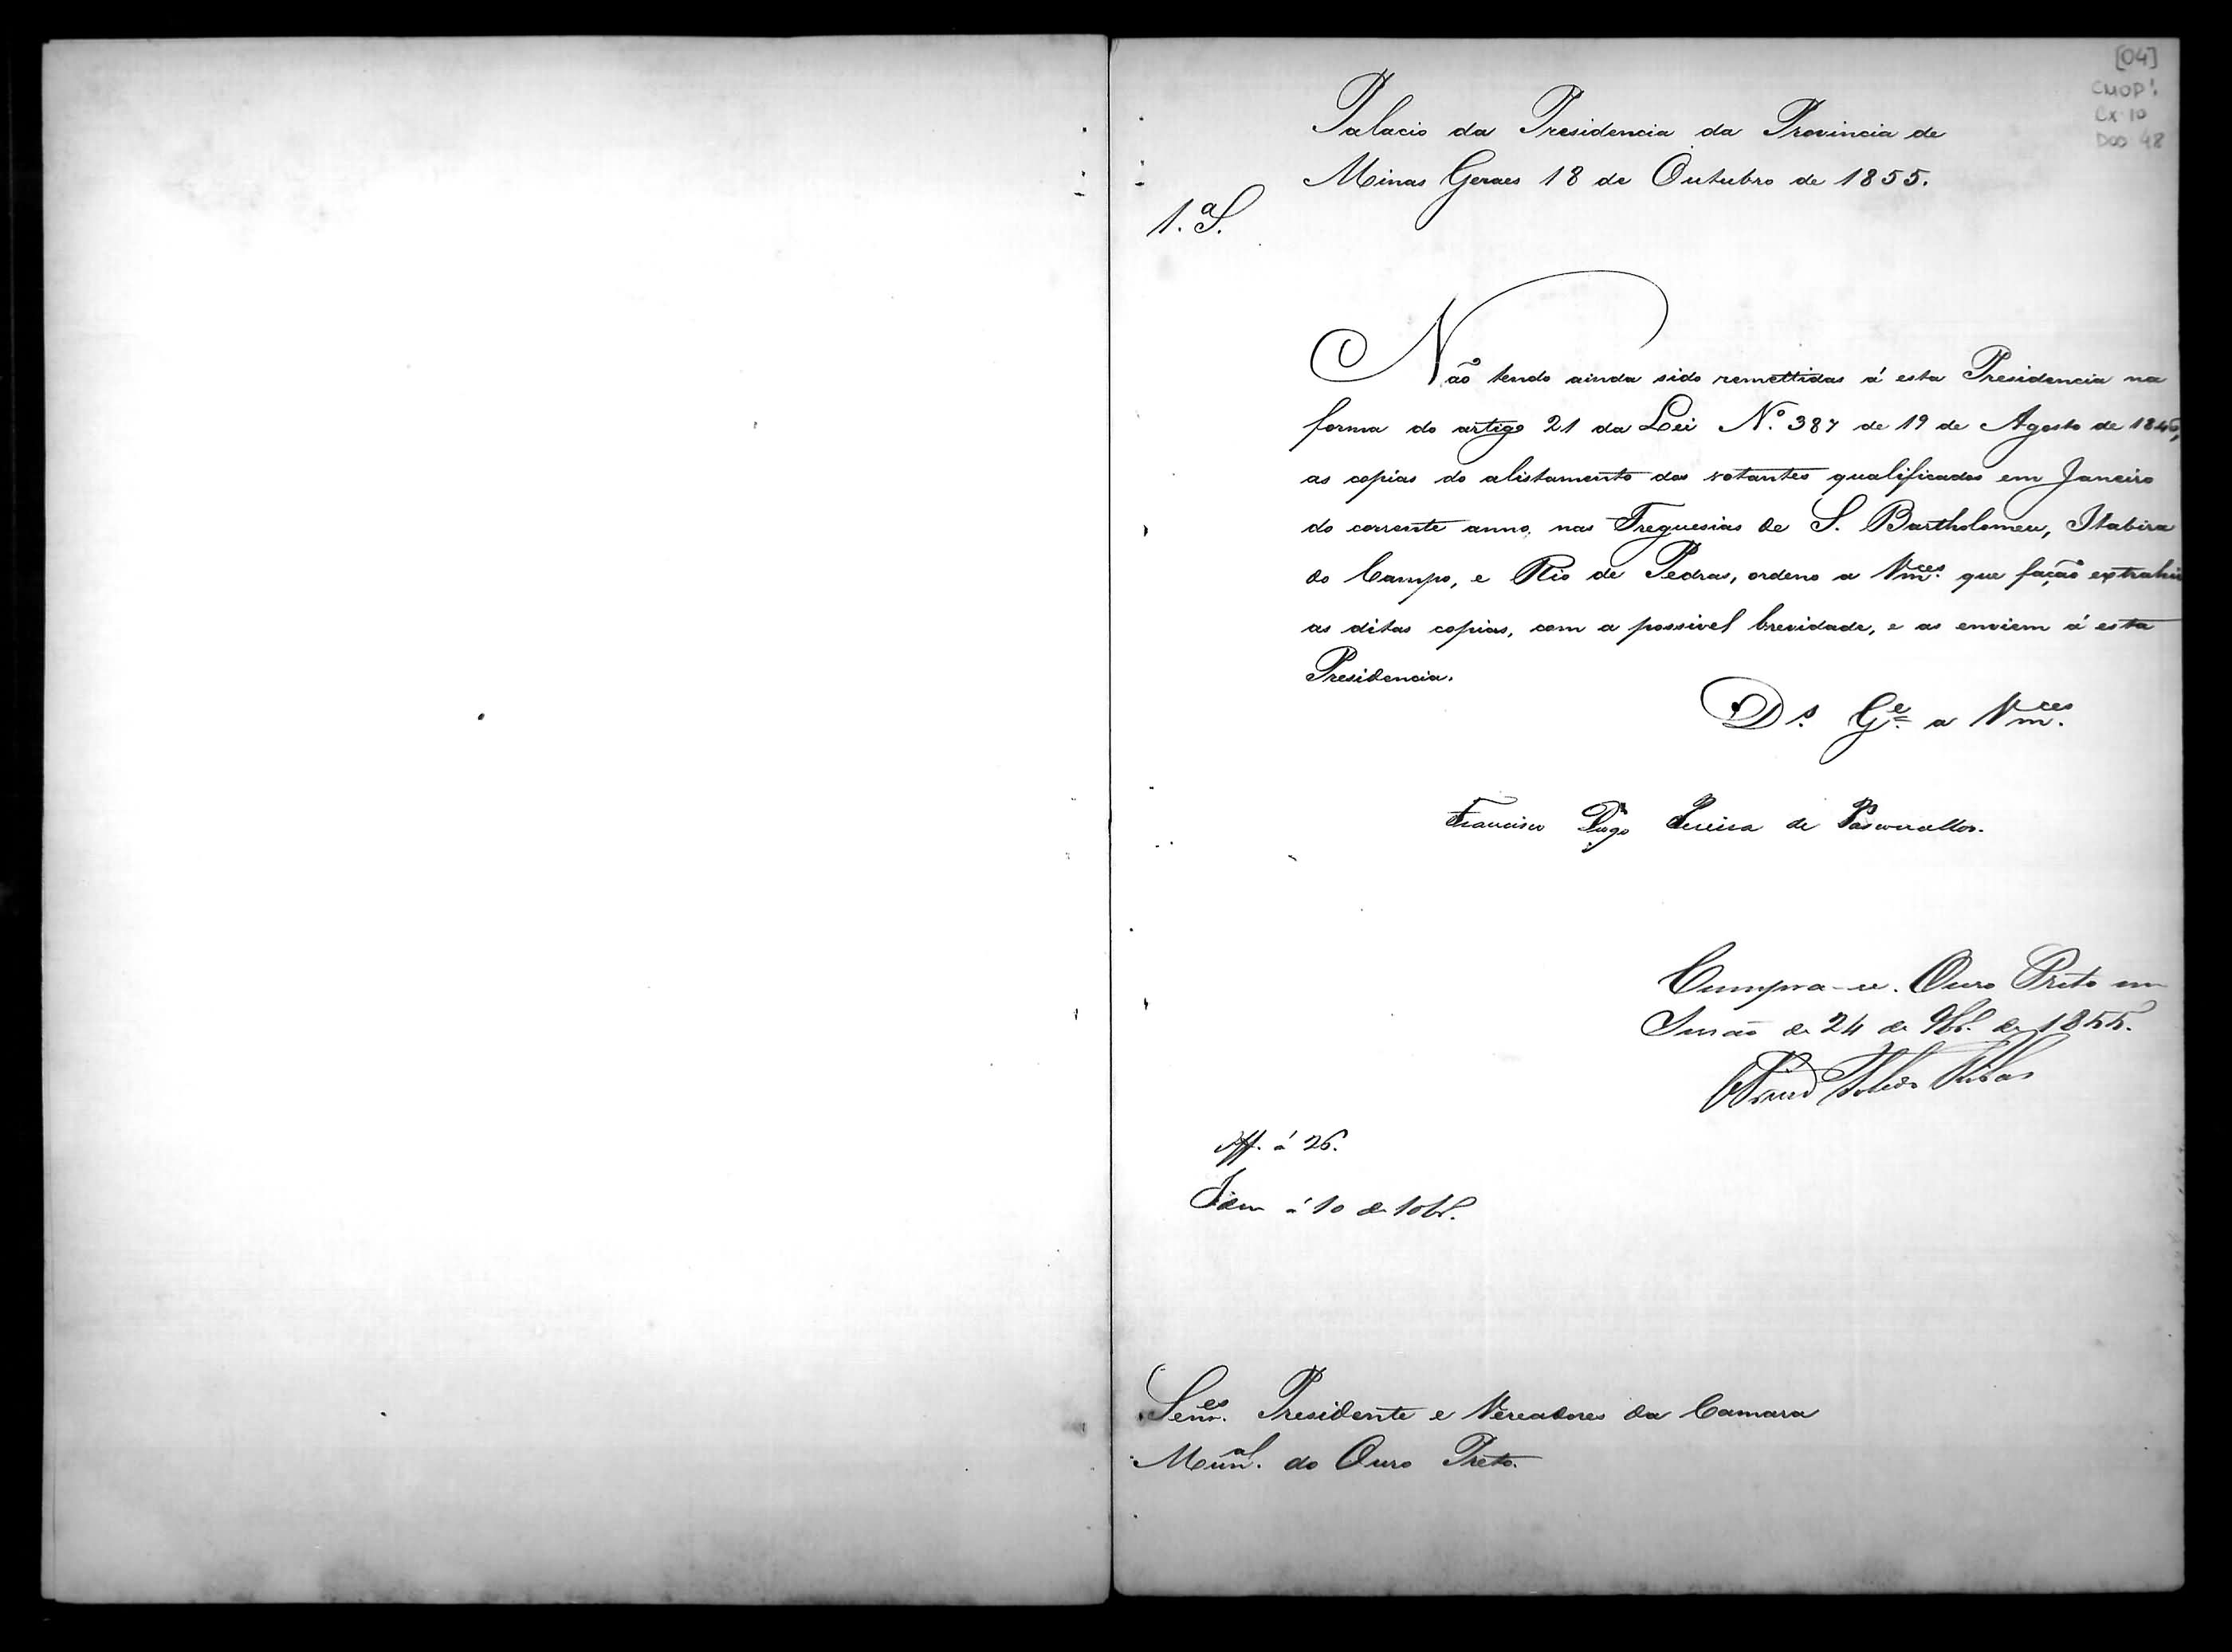 [04]
CMOP!
Cx 10
Doc 48
Palacio da Presidencia da Provincia de
Minas Geraes 18 de Outubro de 1855.
1.ª S.
Não tendo ainda sido remettidas á esta Presidencia na
forma do artigo 21 da Lei N.º 387 de 19 de Agosto de 1846,
as copias do alistamento dos votantes qualificados em Janeiro
do corrente anno, nas Freguesias de S. Bartholomeu, Itabira
do Campo, e Rio de Pedras, ordeno a Vm.ces que fação extrahir
as ditas copias, com a possivel brevidade, e as enviem á esta
Presidencia.
D.s G.e a Vm.ces
Francisco Diogo Pereira de Vasconcellos.
Cumpra-se. Ouro Preto em
Sessão de 24 de 9br.o de 1855.
Off. á 26.
Idem á 10 de 10br.o
Senr.es Presidente e Vereadores da Camara
Mun.al do Ouro Preto.